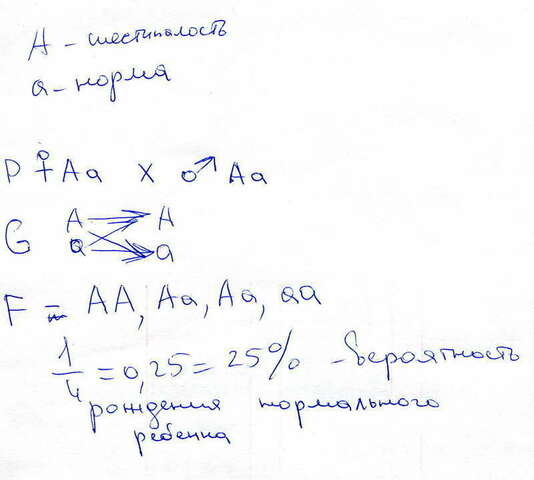 A - шестипалость
а - норма
P ♀ Aa x ♂ Aa
G A A
a a
F = AA, Aa, Aa, aa
1/4 = 0,25 = 25% - вероятность
рождения нормального
ребенка